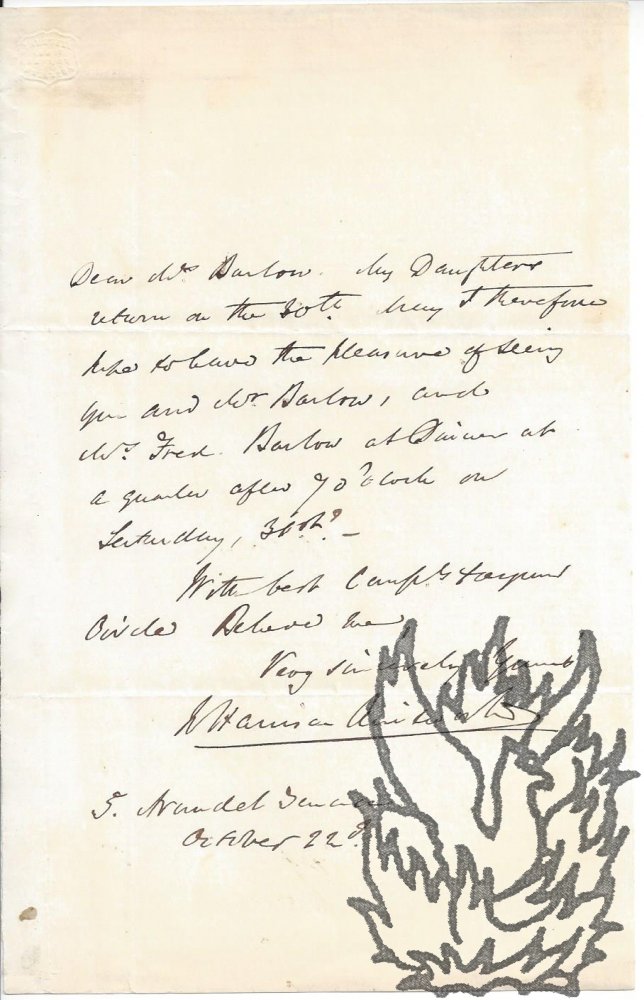 Dear Mrs Barlow. My Daughters
return on the 30th. May I therefore
hope to have the pleasure of seeing
you and Mr Barlow, and
Mr. Fred. Barlow at Dinner at
a quarter after 7 o'clock on
Saturday, 30th? —
With best Compts
Circle Believe me
Very sincerely Yours
W Harrison Ainsworth
5. Arundel Terrace
October 22d.